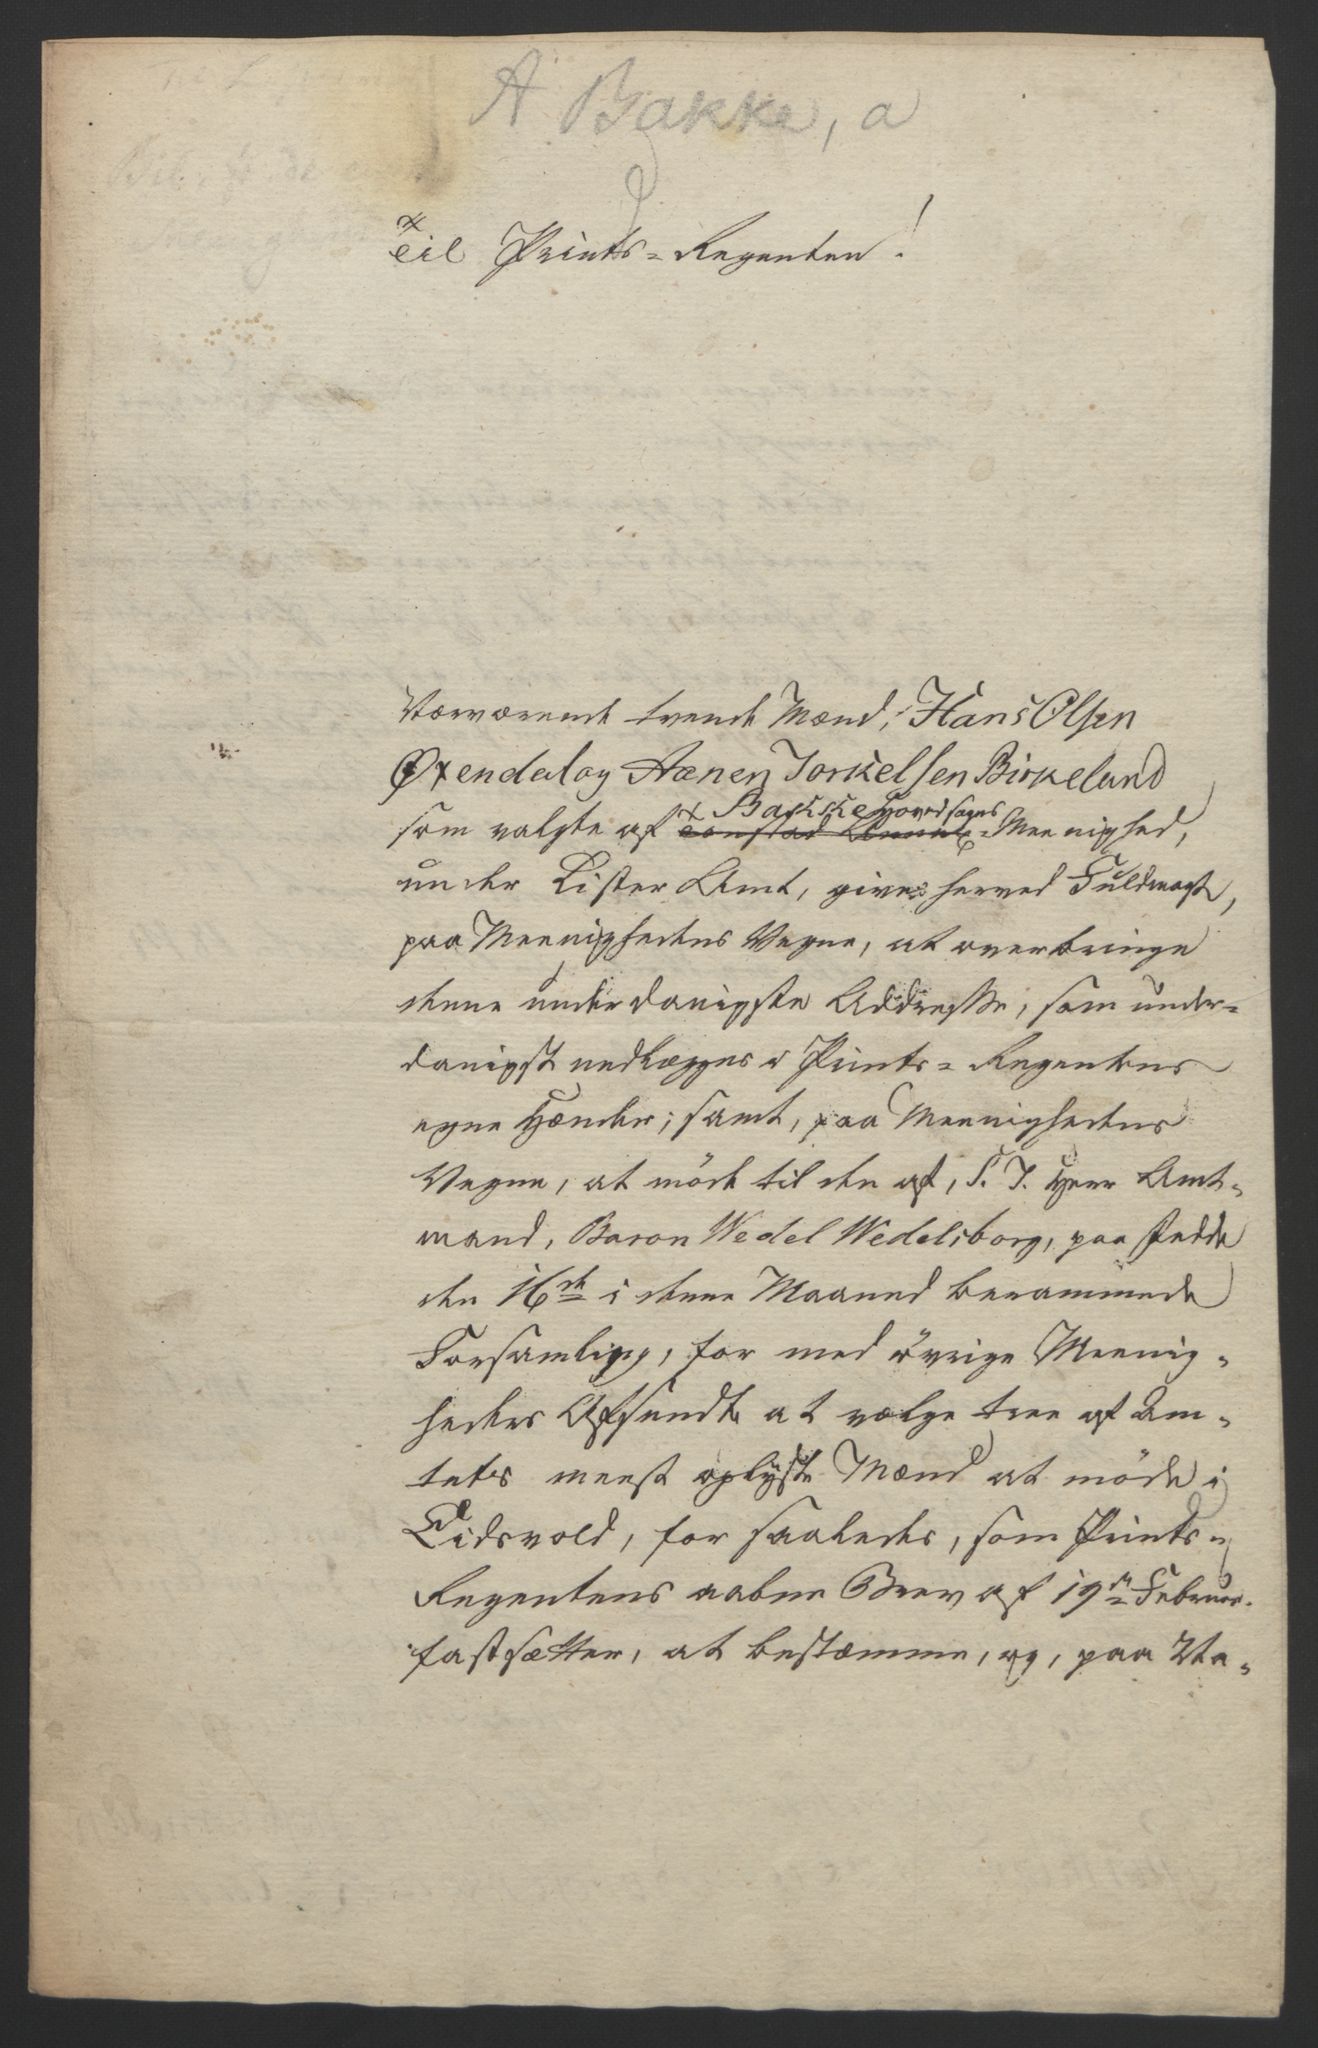 A Bakke, a
Til Prints-Regenten!
Nærværende tvende Mænd, Hans Olsen
Øxendal og Aanen Torkelsen Birkeland
Bakke Hovedsogns
som valgte af Tonstad Annex Meenighed,
under Lister Amt, gives herved Fuldmagt,
paa Meenighedens Vegne, at overbringe
denne underdanigste Addresse, som under-
danigst nedlægges i Prints-Regentens
egne Hænder; samt, paa Meenighedens
Vegne, at møde til den af, S. T. Herr Amt-
mand, Baron Wedel Wedelsborg, paa Fedde
den 16de i denne Maaned berammede
Forsamling, for med øvrige Meenig-
heders Afsendte at vælge tree af Am-
tets meest oplyste Mænd at møde i
Eidsvold, for saaledes, som Prints-
Regentens aabne Brev af 19de Februar
fastsætter, at bestemme, og, paa Sta-